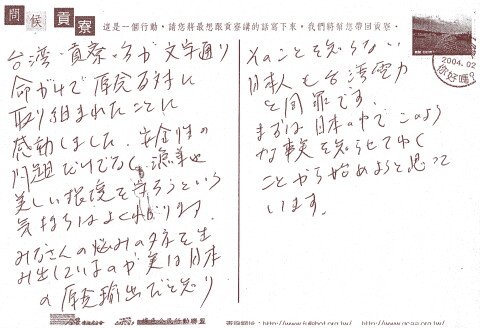 問候貢寮
這是一個行動，請您將最想跟貢寮講的話寫下來，我們將幫您帶回貢寮。
台湾・貢寮の方が文字通り
命がけで原発反対に
取り組まれたことに
感動しました。安全性の
問題だけでなく、漁業や
美しい環境を守ろうという
気持ちはよくわかります。
みなさんの悩みのタネを生
み出しているのが実は日本
の原発輸出だと知り
そのことを知らない
日本人も台湾電力
と同罪です。
まずは日本の中でこのよう
な事実を知らせてゆく
ことから始めようと思って
います。
2004.02
你好嗎?